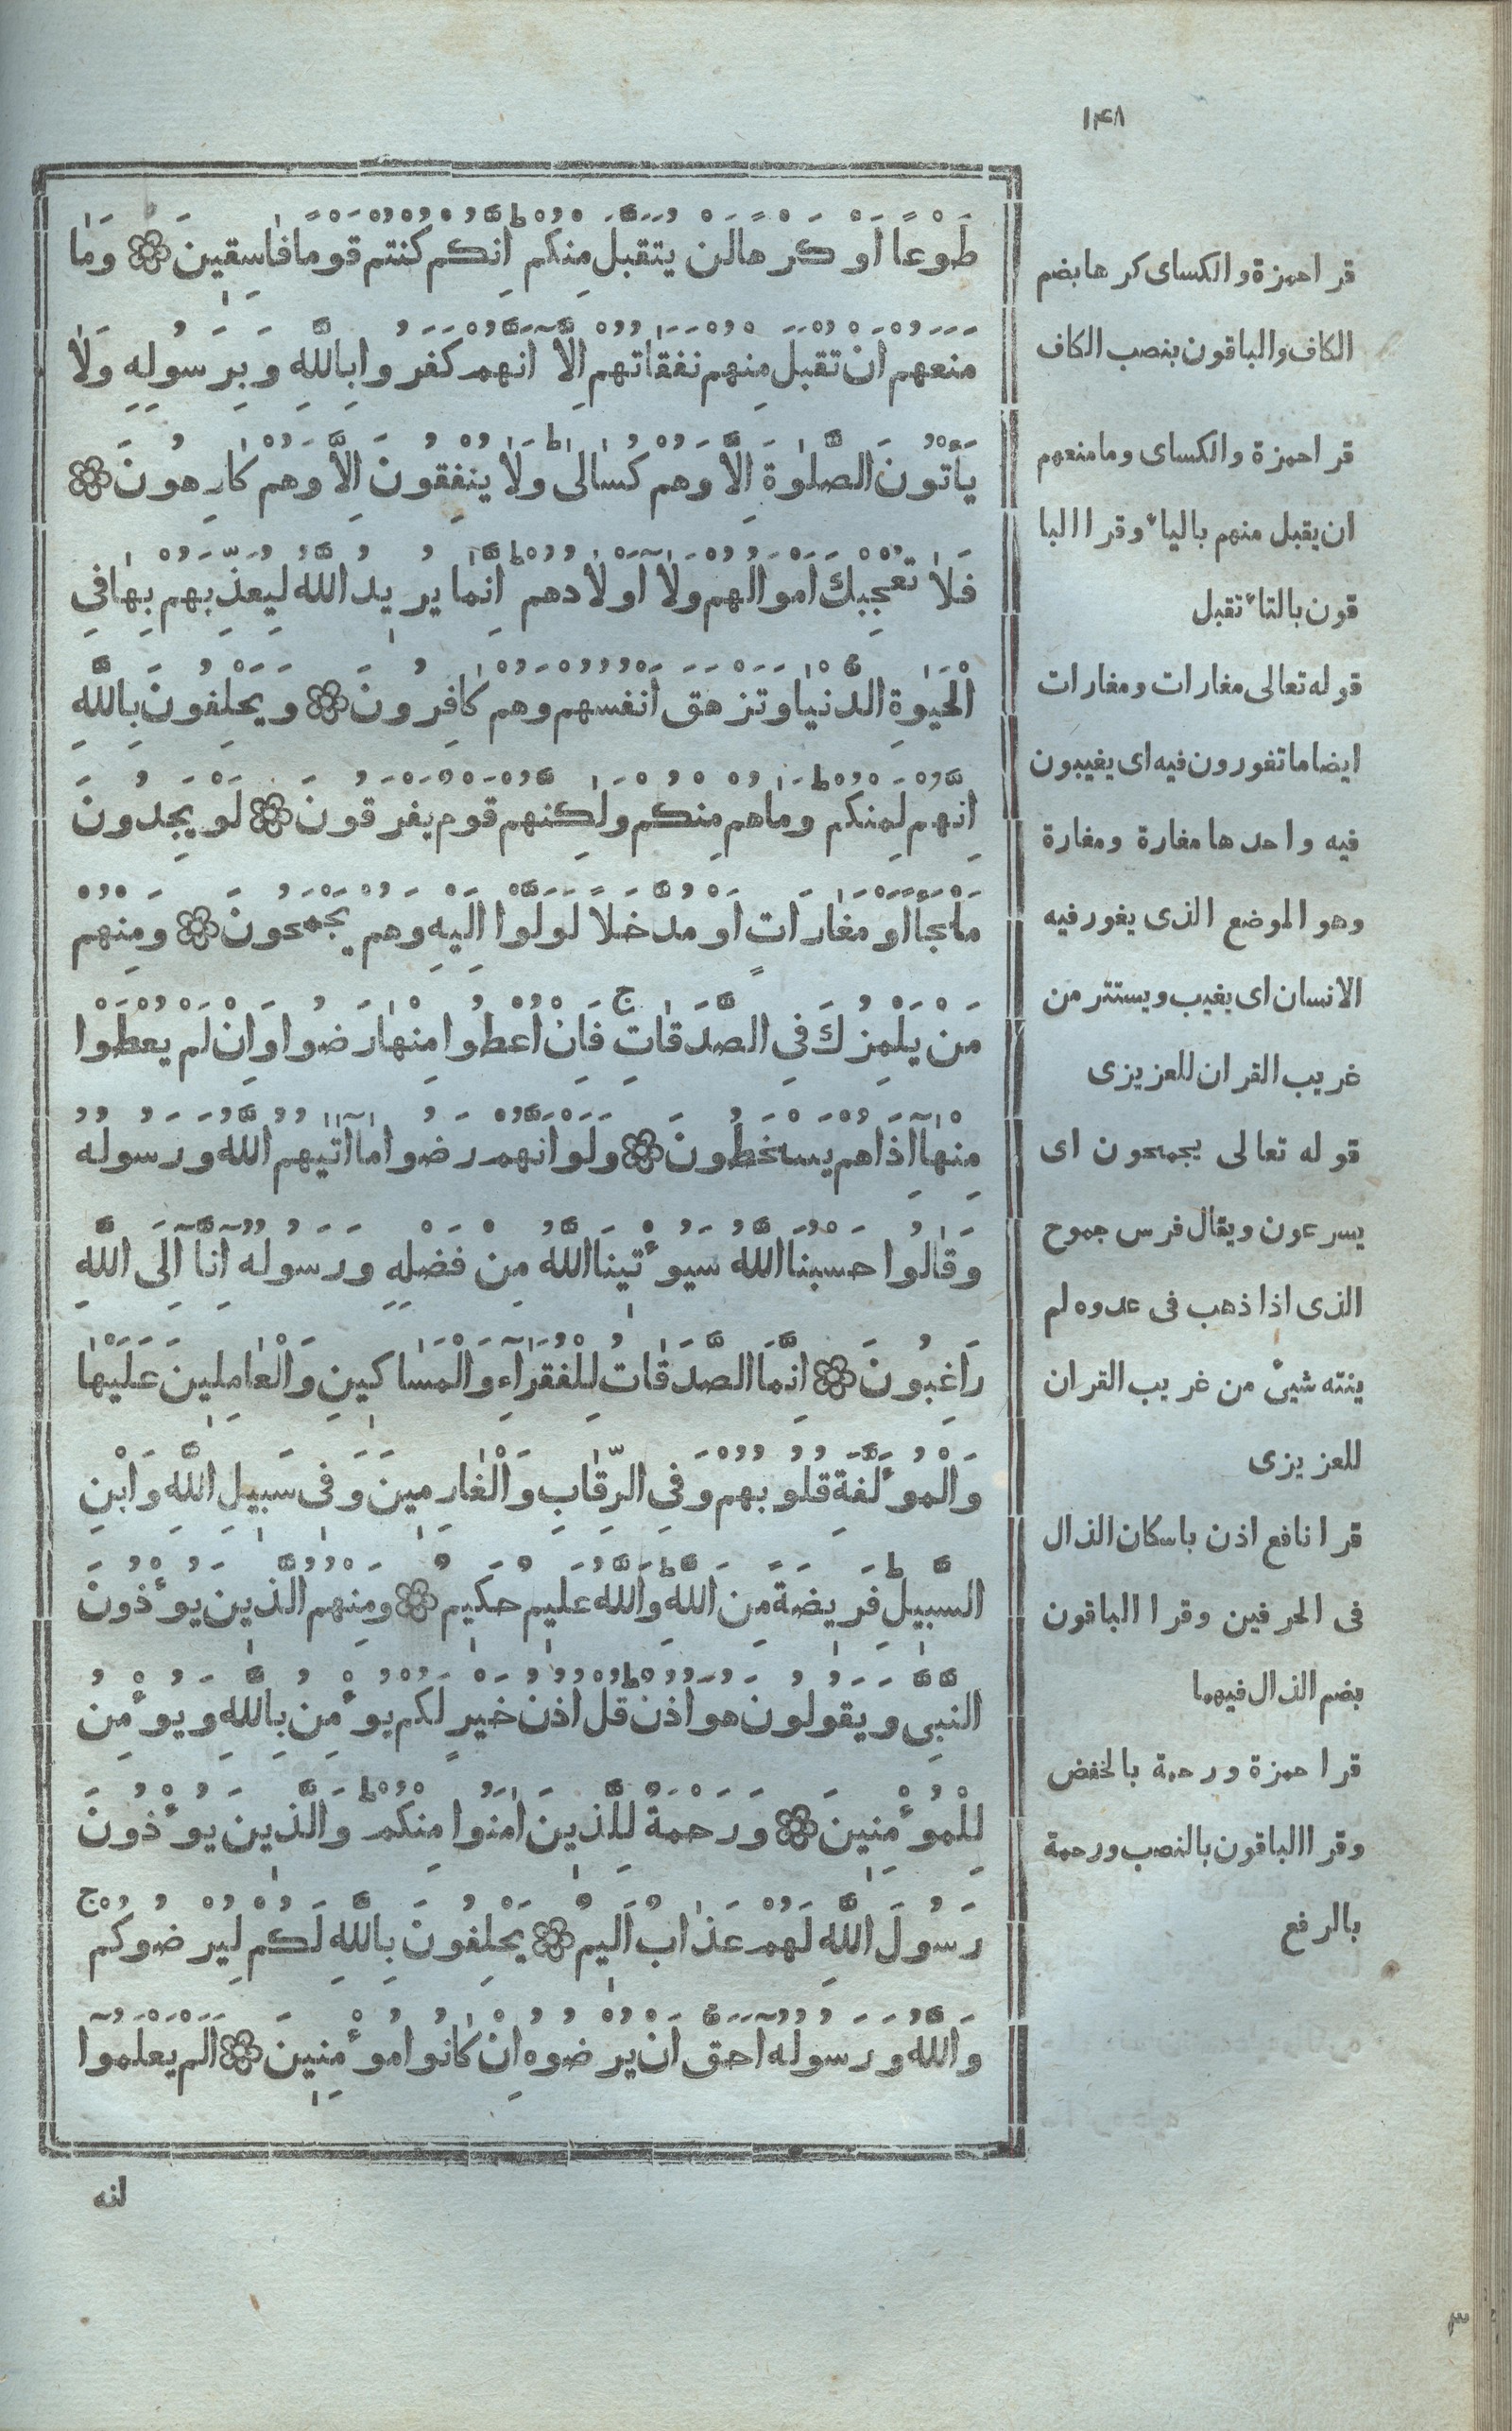 ۱۴۸
طَوْعًا اَوْ كَرْهًا لَنْ يُتَقَبَّلَ مِنْكُمْ اِنَّكُمْ كُنْتُمْ قَوْمًا فَاسِقِينَ ۞ وَمَا
مَنَعَهُمْ اَنْ تُقْبَلَ مِنْهُمْ نَفَقَاتُهُمْ اِلَّا اَنَّهُمْ كَفَرُوا بِاللّٰهِ وَبِرَسُولِهِ وَلَا
يَأْتُونَ الصَّلٰوةَ اِلَّا وَهُمْ كُسَالٰى وَلَا يُنْفِقُونَ اِلَّا وَهُمْ كَارِهُونَ ۞
فَلَا تُعْجِبْكَ اَمْوَالُهُمْ وَلَا اَوْلَادُهُمْ اِنَّمَا يُرِيدُ اللّٰهُ لِيُعَذِّبَهُمْ بِهَا فِي
الْحَيٰوةِ الدُّنْيَا وَتَزْهَقَ اَنْفُسُهُمْ وَهُمْ كَافِرُونَ ۞ وَيَحْلِفُونَ بِاللّٰهِ
اِنَّهُمْ لَمِنْكُمْ وَمَا هُمْ مِنْكُمْ وَلٰكِنَّهُمْ قَوْمٌ يَفْرَقُونَ ۞ لَوْ يَجِدُونَ
مَلْجَأً اَوْ مَغَارَاتٍ اَوْ مُدَّخَلًا لَوَلَّوْا اِلَيْهِ وَهُمْ يَجْمَحُونَ ۞ وَمِنْهُمْ
مَنْ يَلْمِزُكَ فِي الصَّدَقَاتِ ج فَاِنْ اُعْطُوا مِنْهَا رَضُوا وَاِنْ لَمْ يُعْطَوْا
مِنْهَا اِذَا هُمْ يَسْخَطُونَ ۞ وَلَوْ اَنَّهُمْ رَضُوا مَا اٰتٰيهُمُ اللّٰهُ وَرَسُولُهُ
وَقَالُوا حَسْبُنَا اللّٰهُ سَيُؤْتِينَا اللّٰهُ مِنْ فَضْلِهِ وَرَسُولُهُ اِنَّا اِلَى اللّٰهِ
رَاغِبُونَ ۞ اِنَّمَا الصَّدَقَاتُ لِلْفُقَرَآءِ وَالْمَسَاكِينِ وَالْعَامِلِينَ عَلَيْهَا
وَالْمُؤَلَّفَةِ قُلُوبُهُمْ وَفِي الرِّقَابِ وَالْغَارِمِينَ وَفِي سَبِيلِ اللّٰهِ وَابْنِ
السَّبِيلِ فَرِيضَةً مِنَ اللّٰهِ وَاللّٰهُ عَلِيمٌ حَكِيمٌ ۞ وَمِنْهُمُ الَّذِينَ يُؤْذُونَ
النَّبِيَّ وَيَقُولُونَ هُوَ اُذُنٌ قُلْ اُذُنُ خَيْرٍ لَكُمْ يُؤْمِنُ بِاللّٰهِ وَيُؤْمِنُ
لِلْمُؤْمِنِينَ ۞ وَرَحْمَةٌ لِلَّذِينَ اٰمَنُوا مِنْكُمْ وَالَّذِينَ يُؤْذُونَ
رَسُولَ اللّٰهِ لَهُمْ عَذَابٌ اَلِيمٌ ۞ يَحْلِفُونَ بِاللّٰهِ لَكُمْ لِيُرْضُوكُمْ ج
وَاللّٰهُ وَرَسُولُهُ اَحَقُّ اَنْ يُرْضُوهُ اِنْ كَانُوا مُؤْمِنِينَ ۞ اَلَمْ يَعْلَمُوا
انه
قرا حمزة والكساى كرها بضم
الكاف والباقون بنصب الكاف
قرا حمزة والكساى ومامنعهم
ان يقبل منهم بالياء وقرا البا
قون بالتاء تقبل
قوله تعالى مغارات ومغارات
ايضا ماتغورون فيه اى يغيبون
فيه واحدها مغارة ومغارة
وهو الموضع الذى يغور فيه
الانسان اى يغيب ويستتر من
غريب القران للعزيزى
قوله تعالى يجمحون اى
يسرعون ويقال فرس جموح
الذى اذا ذهب فى عدوه لم
ينته شيئ من غريب القران
للعزيزى
قرا نافع اذن باسكان الذال
فى الحرفين وقرا الباقون
بضم الذال فيهما
قرا حمزة ورحمة بالخفض
وقرا الباقون بالنصب ورحمة
بالرفع
۳